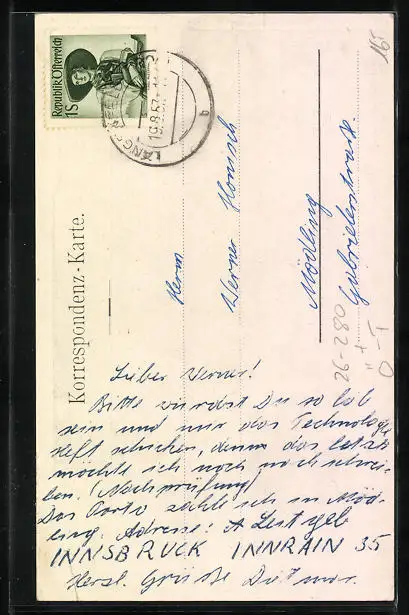 Republik Österreich
1S
LÄNG
19.8.67
Korrespondenz-Karte.
Herrn
Werner
Mödling
Gabrielerstrasse.
16T
26-280
Ö-T
Lieber Werner!
Bitte würdest Du so lob
sein und mir das Technologie
Heft schicken, denn das letzte
möchte ich noch nachschrei-
ben. (Nachprüfung)
Das Porto zahle ich in Möd-
ling. Adresse: A
INNSBRUCK INNRAIN 35
Herzl. Grüße Dietmar.